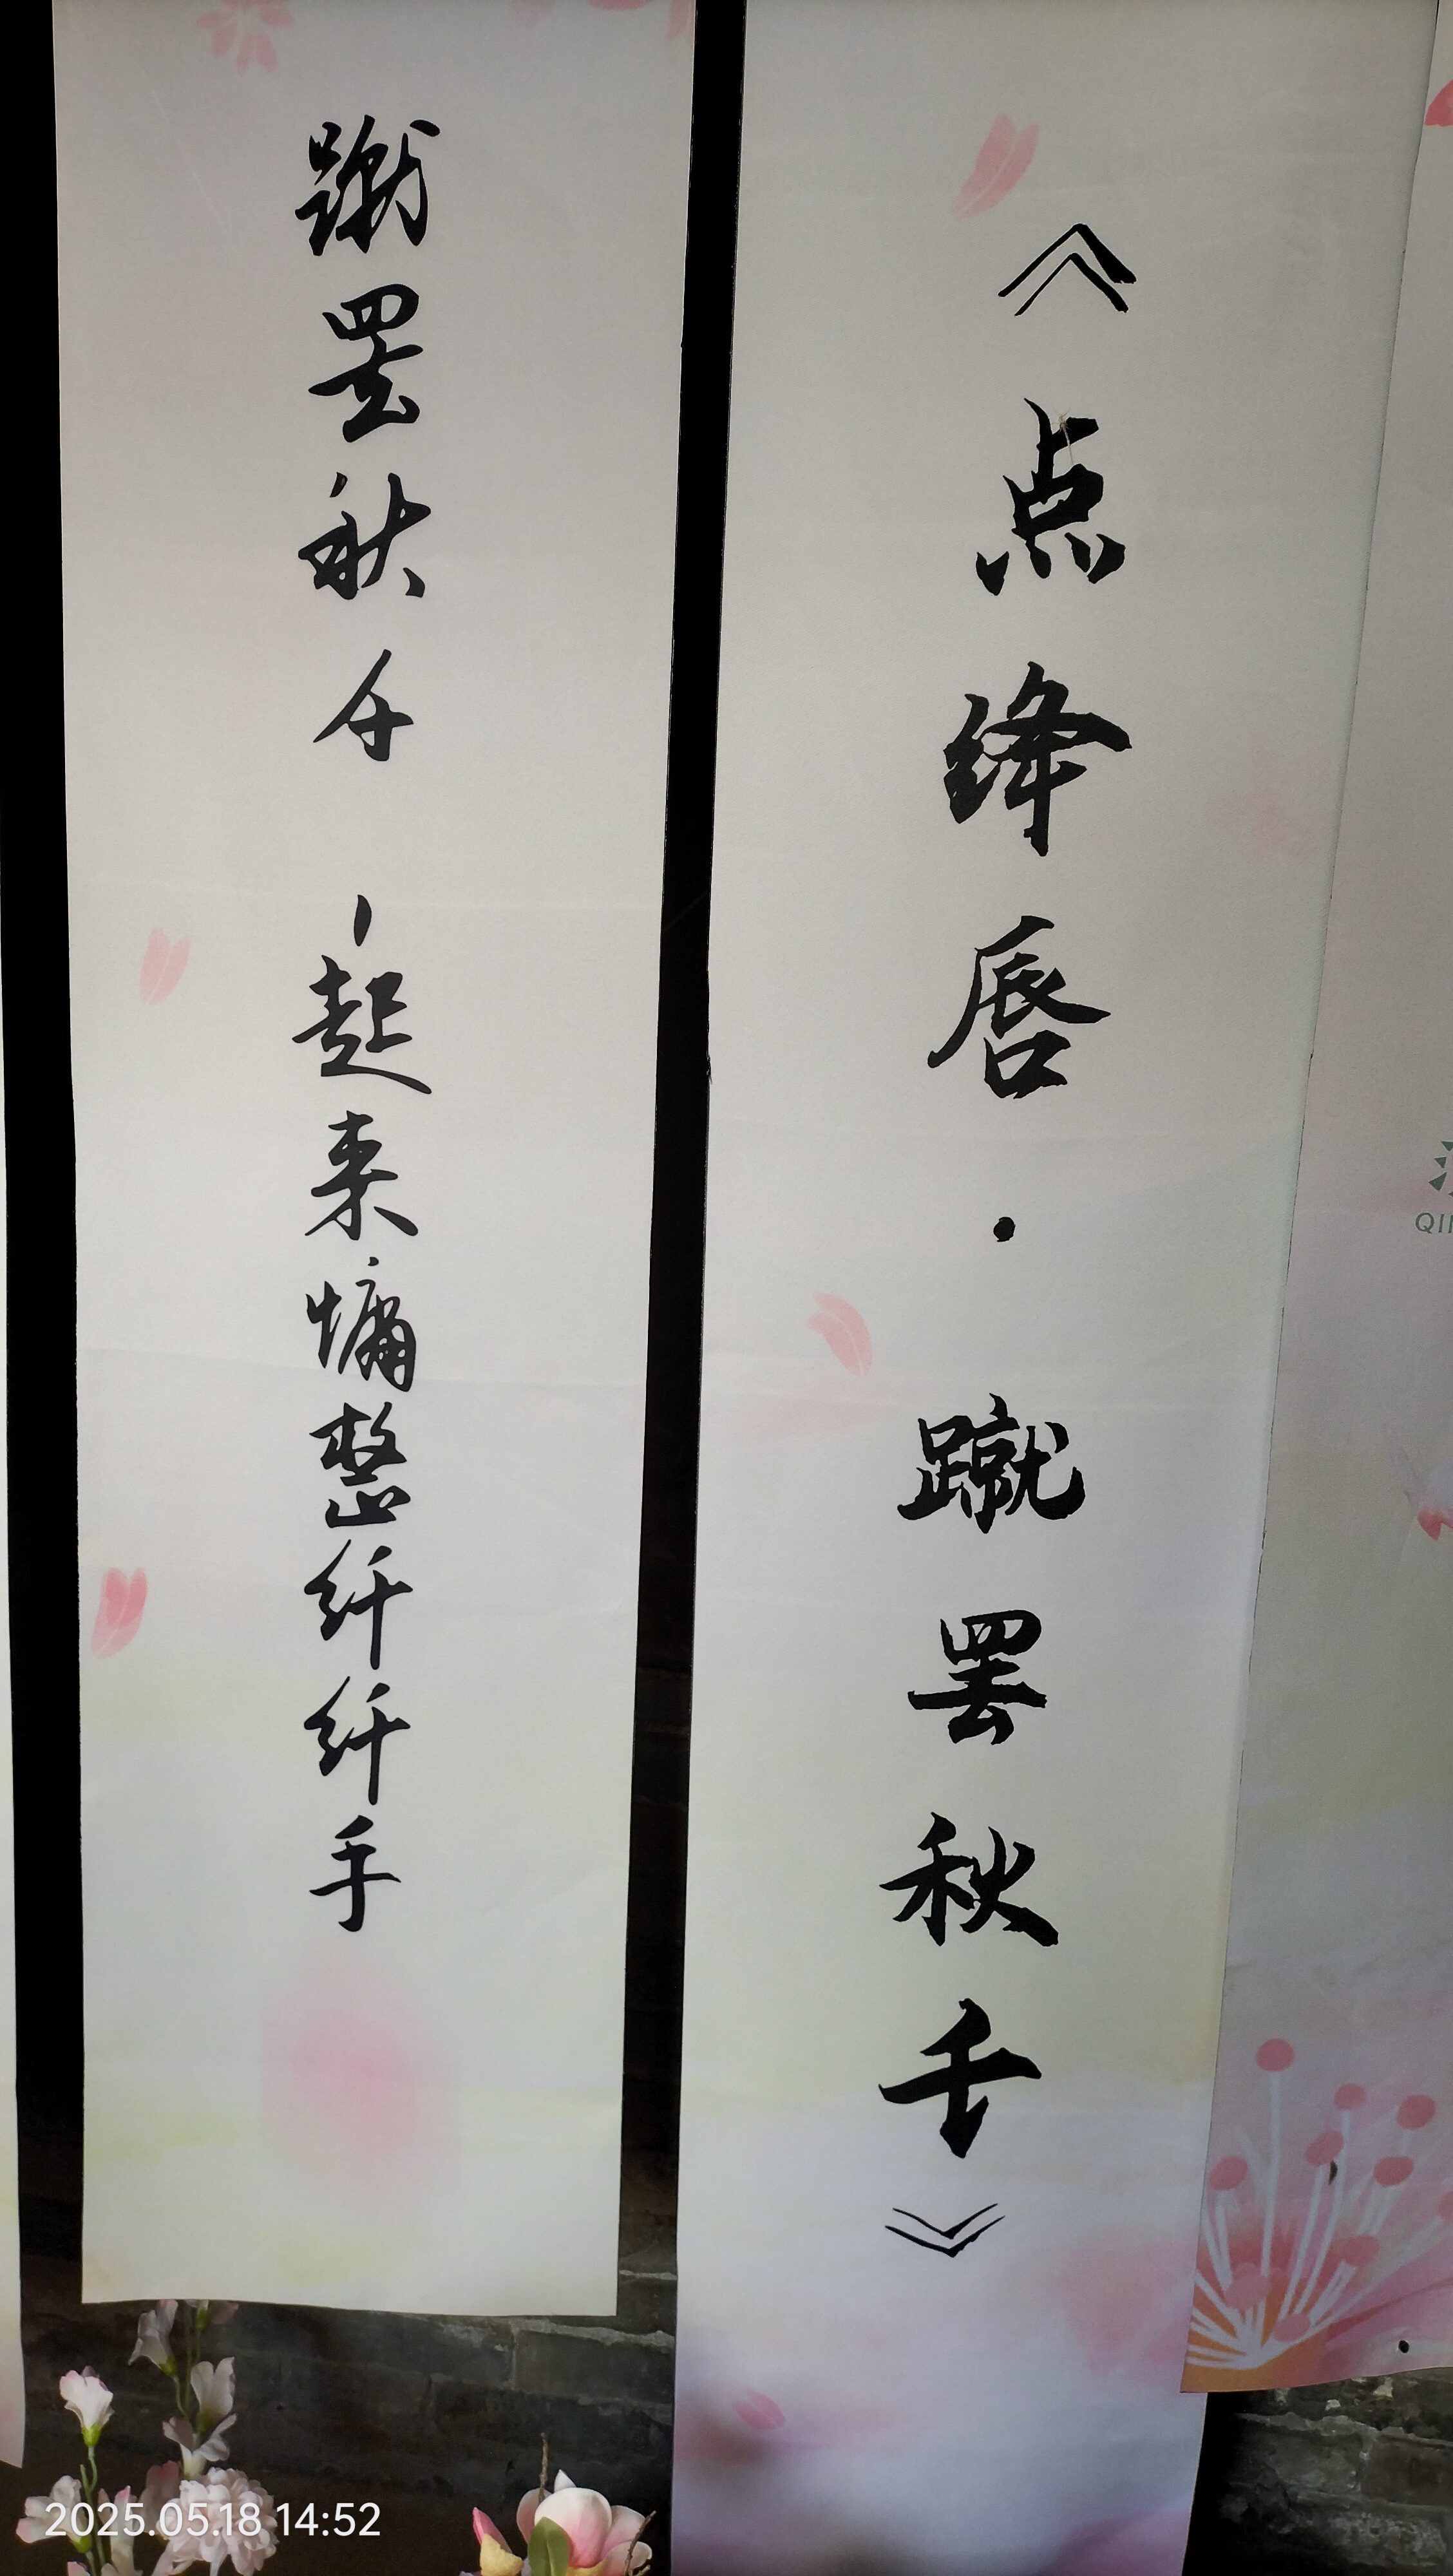 《点绛唇·蹴罢秋千》
蹴罢秋千，起来慵整纤纤手
QIN
2025.05.18 14:52